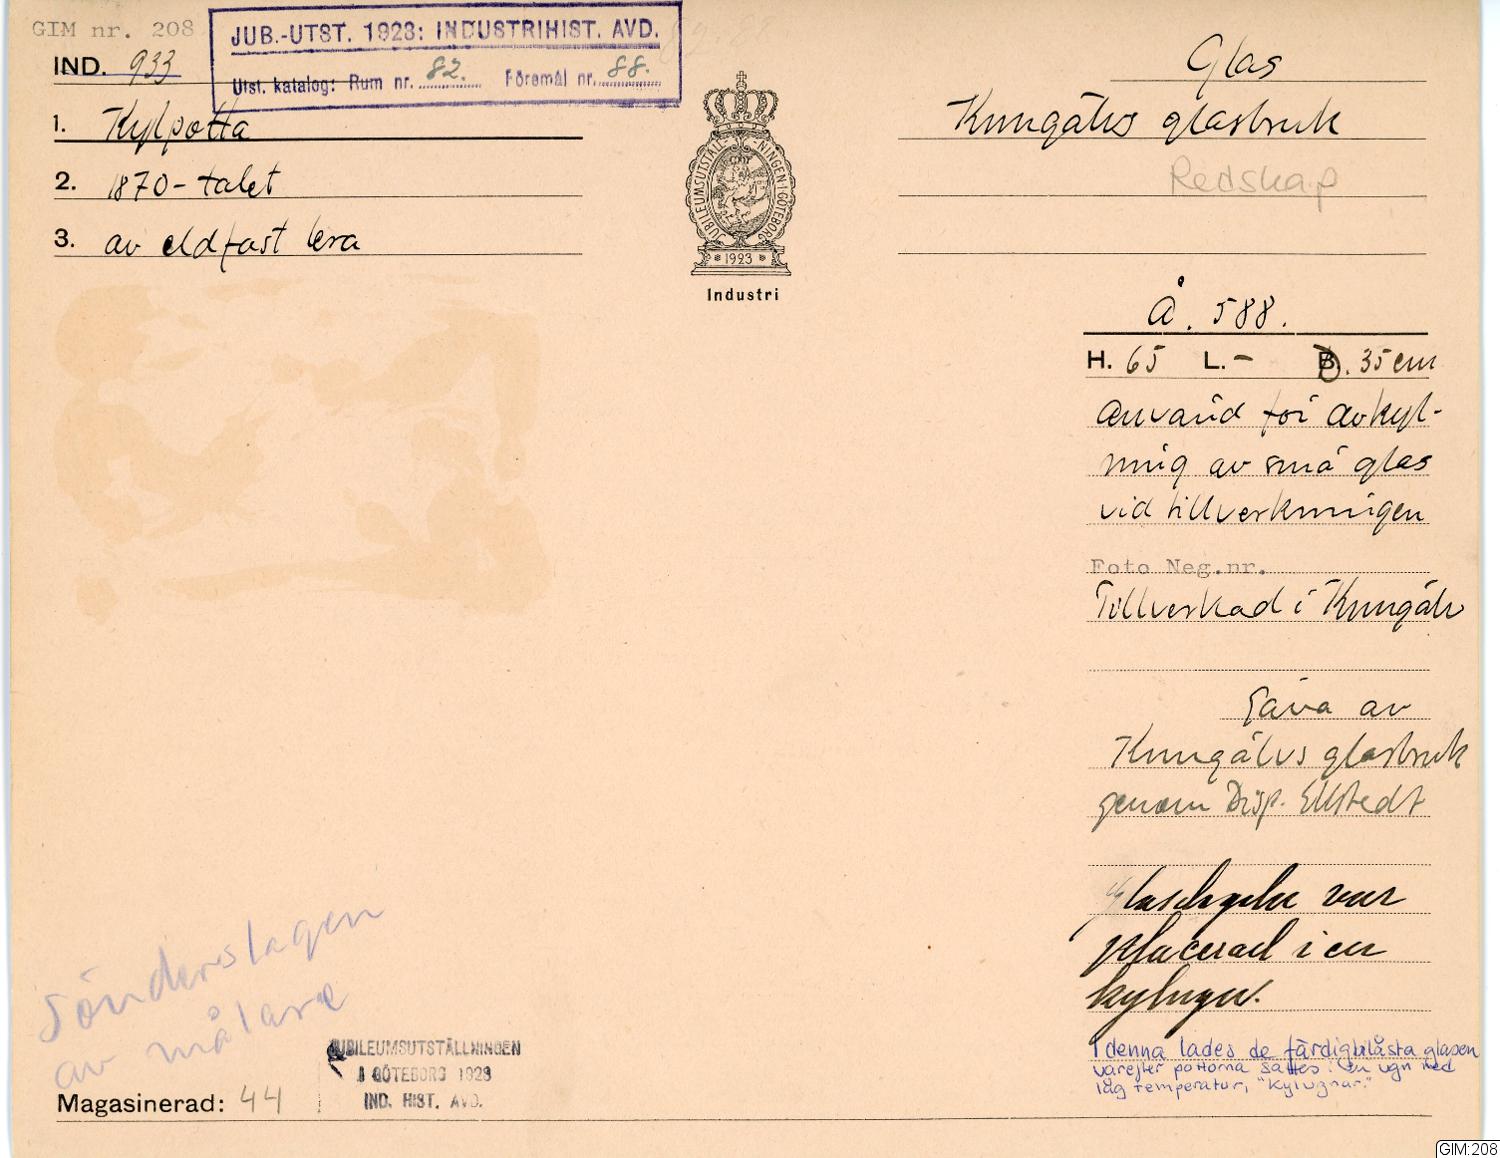 GIM nr. 208
JUB.-UTST. 1923: INDUSTRIHIST. AVD.
Utst. katalog: Rum nr. 82. Föremål nr. 88.
IND. 933
1. Kylpotta
2. 1870-talet
3. av eldfast lera
JUBILEUMSUTSTÄLLNINGEN I GÖTEBORG
1923
Industri
Glas
Kungälvs glasbruk
Redskap
Å. 588.
H. 65 L. - D. 35 cm
använd för avkyl-
ning av små glas
vid tillverkningen
Foto Neg.nr.
Tillverkad i Kungälv
Gåva av
Kungälvs glasbruk
genom Disp. Ellstedt
var
placerad i en
kylugn.
I denna lades de färdigblåsta glasen
varefter pottorna sattes i en ugn med
låg temperatur, "kylugnar."
Sönderslagen
av målare
JUBILEUMSUTSTÄLLNINGEN
I GÖTEBORG 1923
IND. HIST. AVD.
Magasinerad: 44
GIM:208